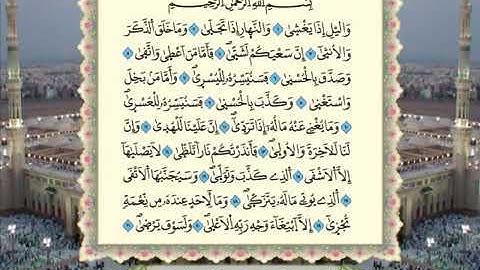 بِسْمِ اللَّهِ الرَّحْمَٰنِ الرَّحِيمِ
وَالَّيْلِ إِذَا يَغْشَىٰ وَالنَّهَارِ إِذَا تَجَلَّىٰ وَمَا خَلَقَ الذَّكَرَ
وَالْأُنثَىٰ إِنَّ سَعْيَكُمْ لَشَتَّىٰ فَأَمَّا مَنْ أَعْطَىٰ وَاتَّقَىٰ
وَصَدَّقَ بِالْحُسْنَىٰ فَسَنُيَسِّرُهُ لِلْيُسْرَىٰ وَأَمَّا مَنْ بَخِلَ
وَاسْتَغْنَىٰ وَكَذَّبَ بِالْحُسْنَىٰ فَسَنُيَسِّرُهُ لِلْعُسْرَىٰ
وَمَا يُغْنِي عَنْهُ مَالُهُ إِذَا تَرَدَّىٰ إِنَّ عَلَيْنَا لَلْهُدَىٰ وَإِنَّ
لَنَا لَلْآخِرَةَ وَالْأُولَىٰ فَأَنذَرْتُكُمْ نَارًا تَلَظَّىٰ لَا يَصْلَاهَا
إِلَّا الْأَشْقَى الَّذِي كَذَّبَ وَتَوَلَّىٰ وَسَيُجَنَّبُهَا الْأَتْقَى
الَّذِي يُؤْتِي مَالَهُ يَتَزَكَّىٰ وَمَا لِأَحَدٍ عِندَهُ مِن نِّعْمَةٍ
تُجْزَىٰ إِلَّا ابْتِغَاءَ وَجْهِ رَبِّهِ الْأَعْلَىٰ وَلَسَوْفَ يَرْضَىٰ